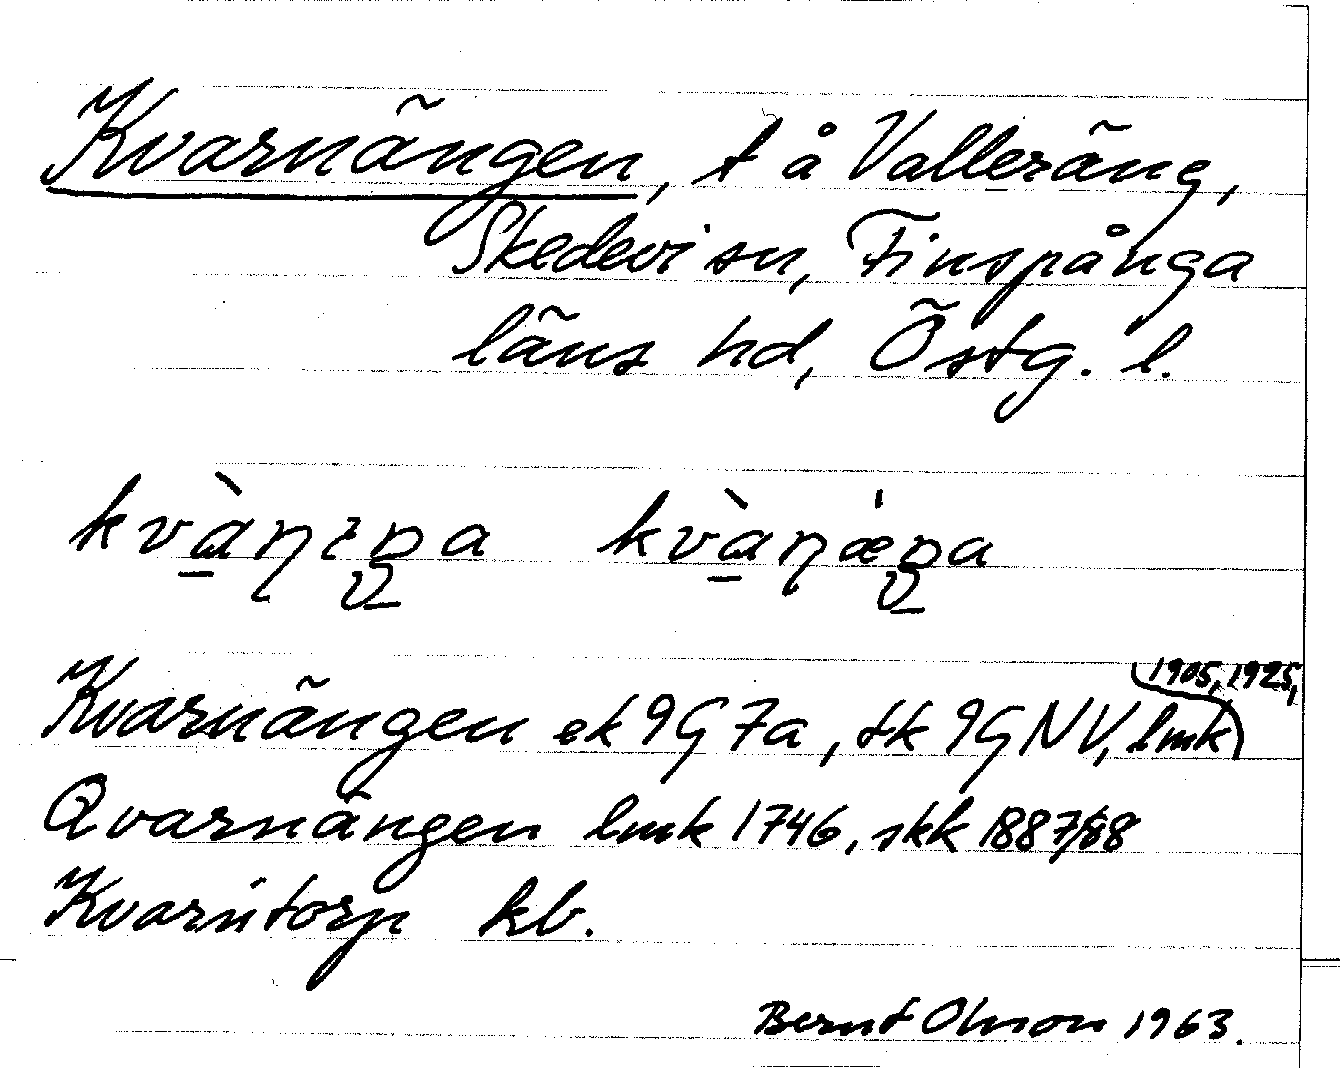 Kvarnängen, t å Valleräng,
Skedevi sn, Finspånga
läns hd, Östg. l.
Kvarnängen ek 9G 7a, tk 9G NV, lmk 1905, 1925,
Qvarnängen lmk 1746, skk 1887/88
Kvarntorp kb.
Bernt Olsson 1963.